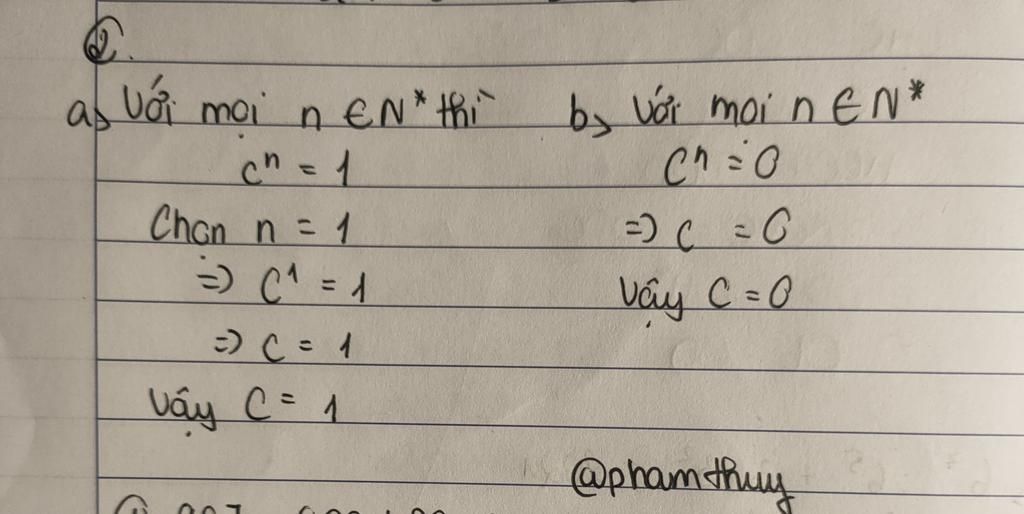 ②.
a) Với mọi n ∈ N* thì
cⁿ = 1
Chọn n = 1
=> C¹ = 1
=> C = 1
Vậy C = 1
b) Với mọi n ∈ N*
Cⁿ = 0
=> C = 0
Vậy C = 0
@phamthuy